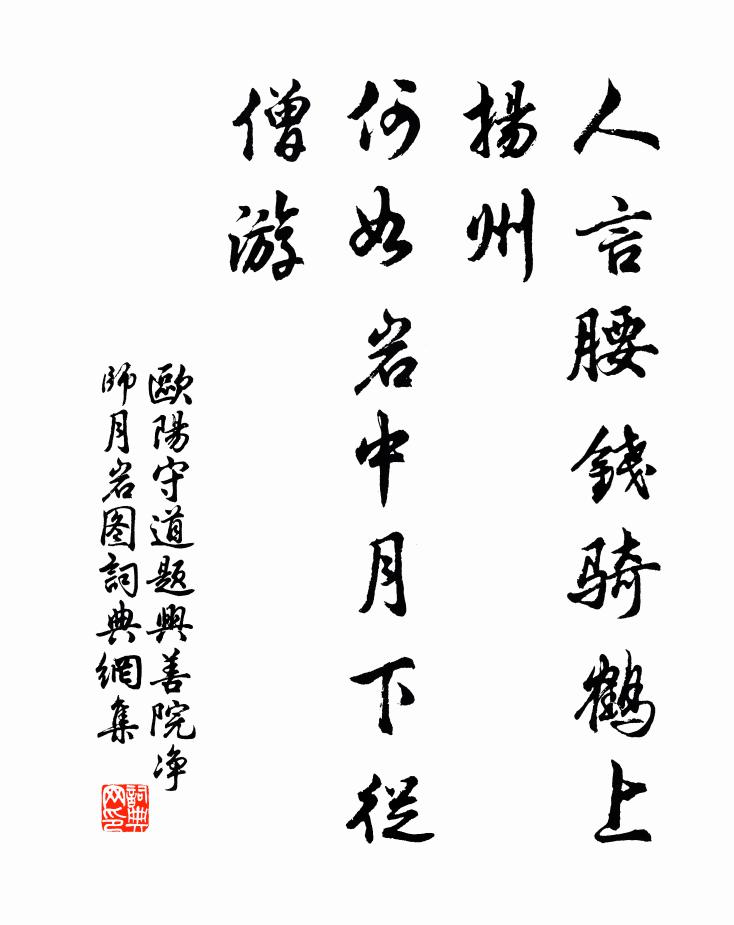 人言腰錢骑鹤上
揚州
何如岩中月下從
僧游
歐陽守道題興善院净
師月岩图詞典網集
詞典
网印